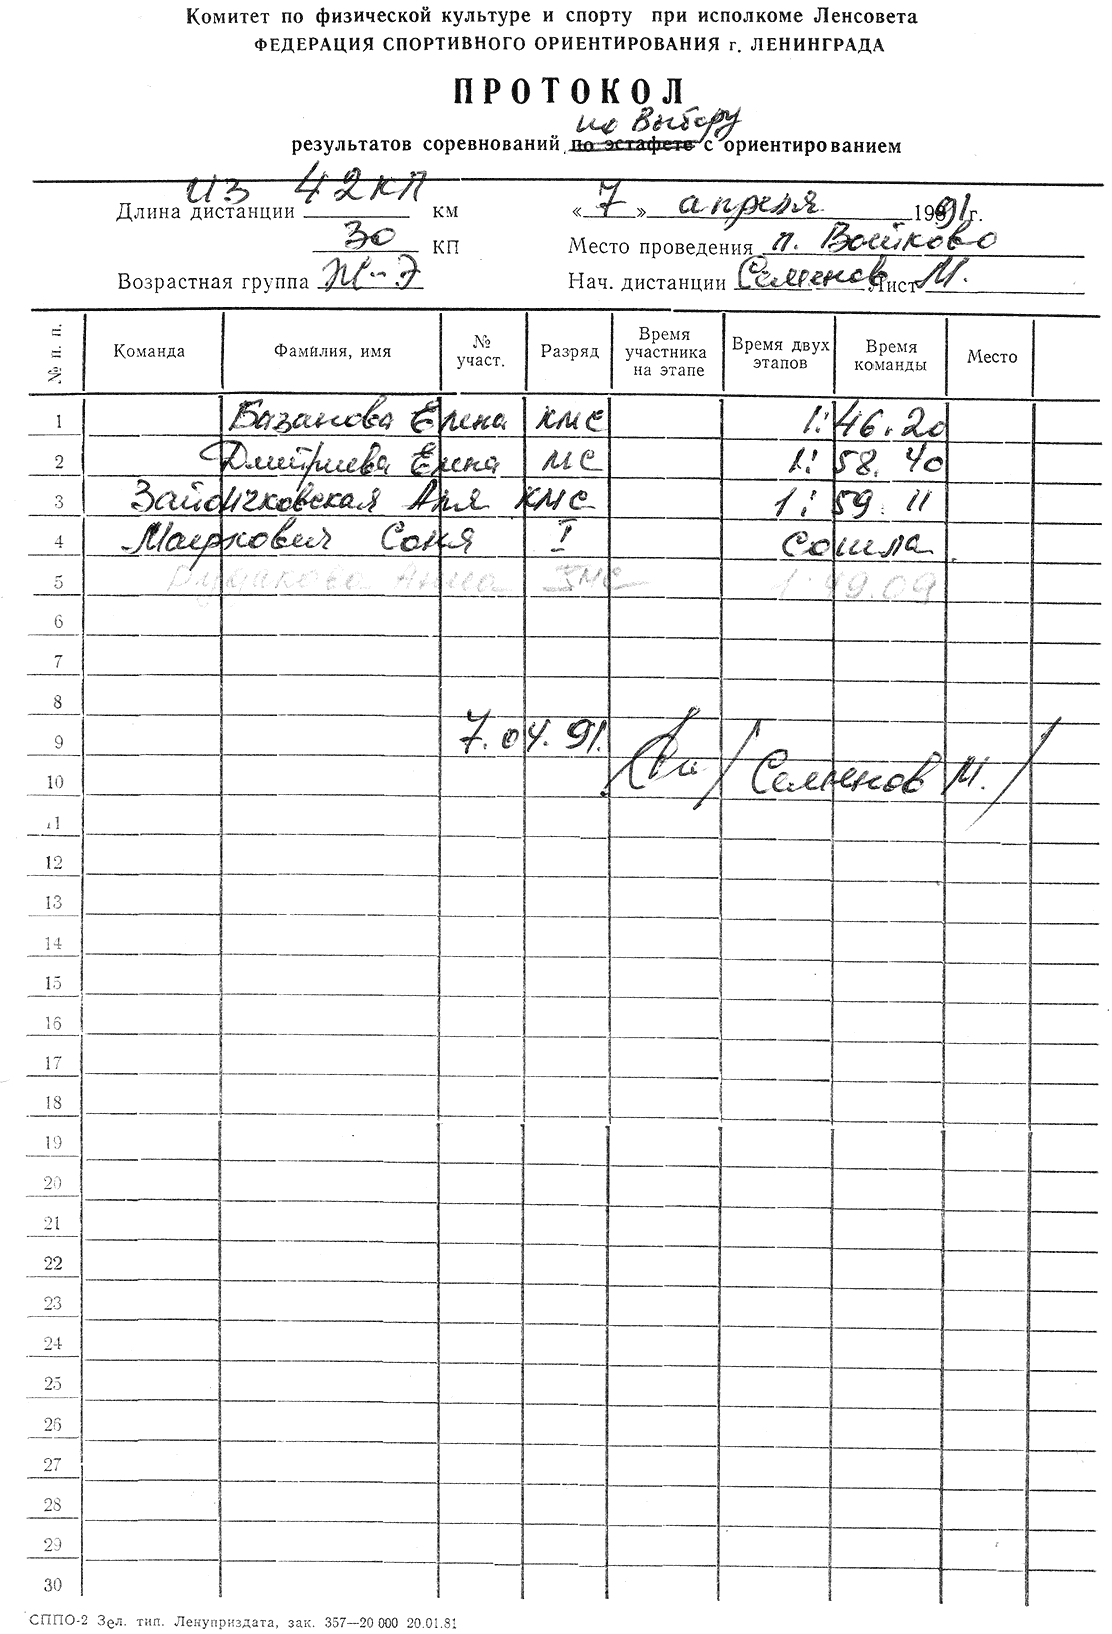 Комитет по физической культуре и спорту при исполкоме Ленсовета
ФЕДЕРАЦИЯ СПОРТИВНОГО ОРИЕНТИРОВАНИЯ г. ЛЕНИНГРАДА
ПРОТОКОЛ
по выбору
результатов соревнований по эстафете с ориентированием
из 42 КП
Длина дистанции км « 7 » апреля 1991 г.
30 КП Место проведения п. Войково
Возрастная группа Ж-Э Нач. дистанции Семенов Лист М.
№ п. п. Команда Фамилия, имя № участ. Разряд Время участника на этапе Время двух этапов Время команды Место
1 Базанова Елена КМС 1:46.20
2 Дмитриева Елена МС 1:58.40
3 Аня КМС 1:59.11
4 Маркович Соня I Сошла
5 Рудакова Анна КМС 1:49.09
6
7
8
9 7.04.91.
10 / Семенов М. /
11
12
13
14
15
16
17
18
19
20
21
22
23
24
25
26
27
28
29
30
СППО-2 Зел. тип. Ленуприздата, зак. 357—20 000 20.01.81